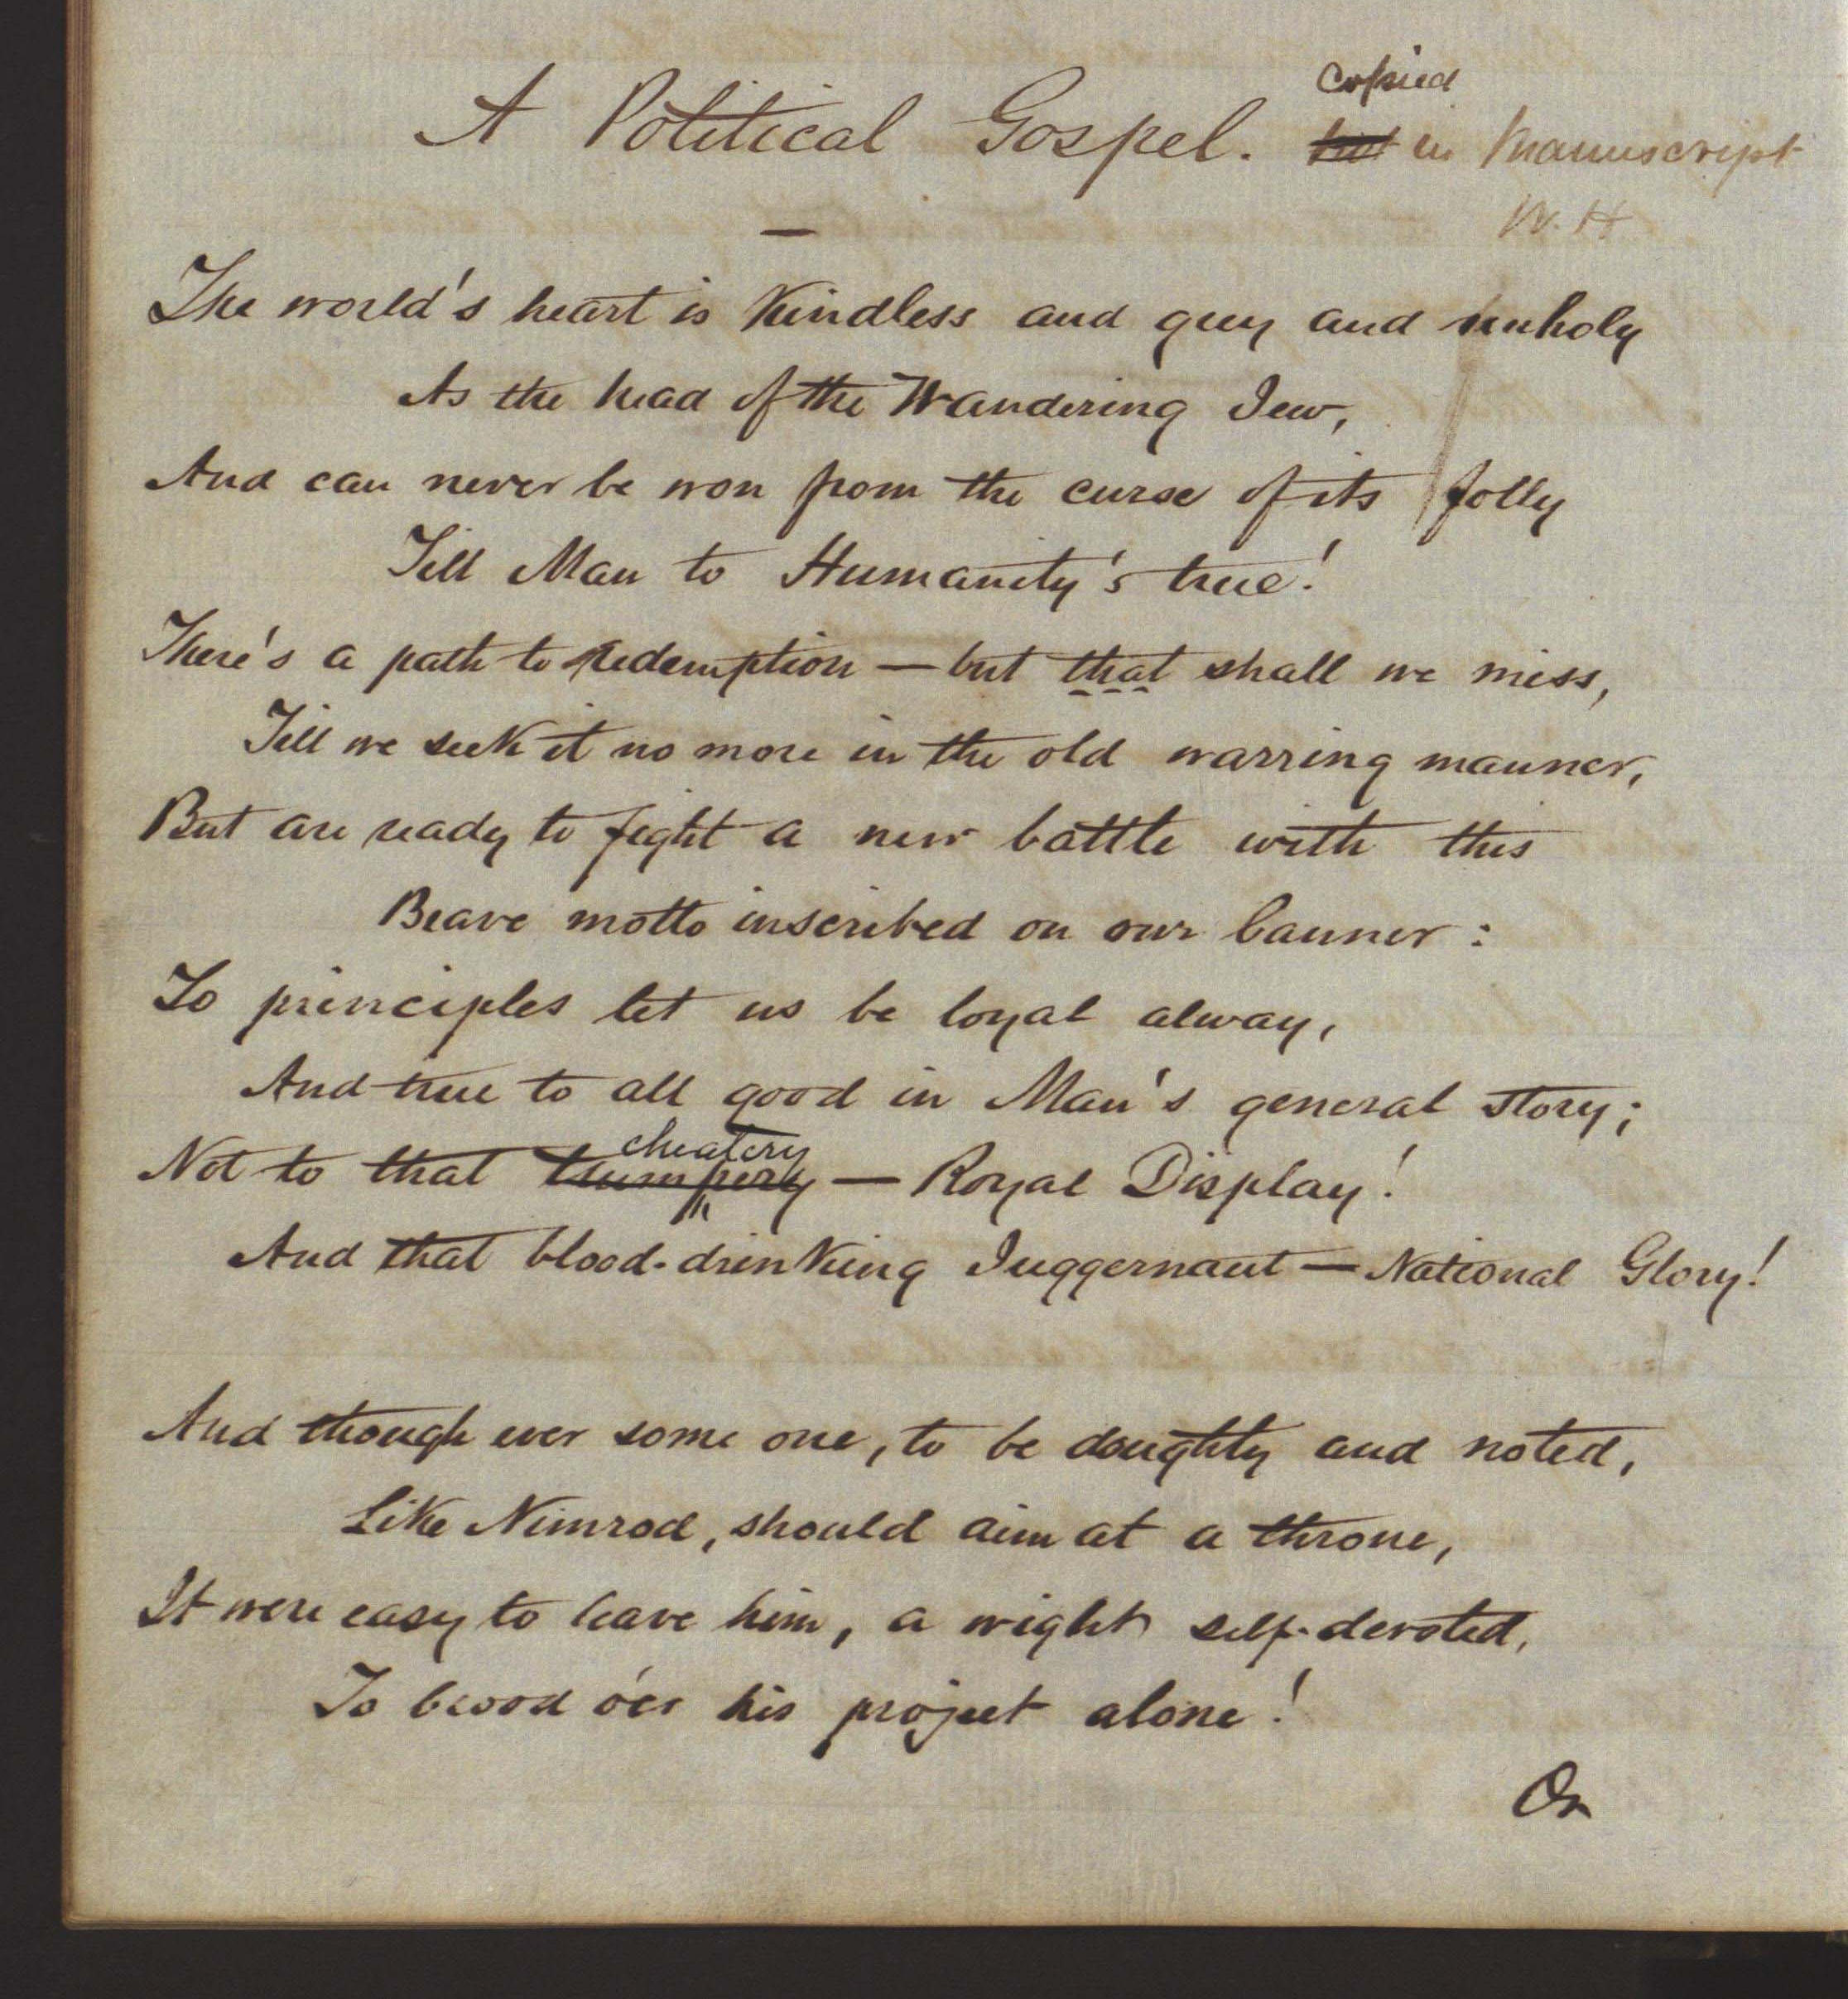 A Political Gospel. copied in Manuscript
W. H
The world's heart is kindless and grey and unholy
As the head of the Wandering Jew,
And can never be won from the curse of its folly
Till Man to Humanity's true!
There's a path to redemption — but that shall we miss,
Till we seek it no more in the old warring manner,
But are ready to fight a new battle with this
Brave motto inscribed on our banner:
To principles let us be loyal alway,
And true to all good in Man's general story;
cheatery
Not to that trumpery — Royal Display!
And that blood-drinking Juggernaut — National Glory!
And though ever some one, to be doughty and noted,
Like Nimrod, should aim at a throne,
It were easy to leave him, a wight self-devoted,
To brood o'er his project alone!
Or